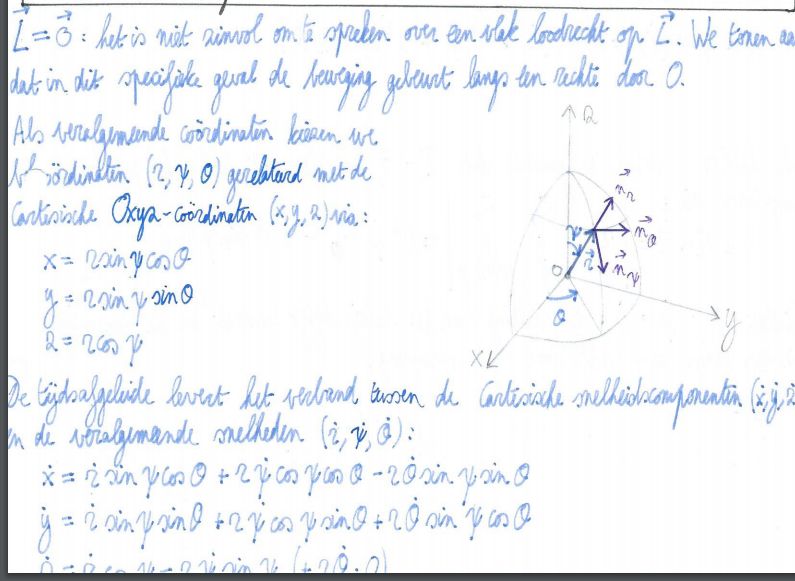 L⃗ = 0⃗ : het is niet zinvol om te spreken over een vlak loodrecht op L⃗. We tonen aa
dat in dit specifieke geval de beweging gebeurt langs een rechte door O.
Als veralgemeende coördinaten kiezen we
(r, ψ, θ) gerelateerd met de
Cartesische Oxyz-coördinaten (x, y, z) via:
x = r sin ψ cos θ
y = r sin ψ sin θ
z = r cos ψ
z
n⃗r
n⃗θ
n⃗ψ
ψ
r⃗
O
θ
x
y
De tijdsafgeleide levert het verband tussen de Cartesische snelheidscomponenten (ẋ, ẏ, ż
en de veralgemeende snelheden (ṙ, ψ̇, θ̇):
ẋ = ṙ sin ψ cos θ + r ψ̇ cos ψ cos θ - r θ̇ sin ψ sin θ
ẏ = ṙ sin ψ sin θ + r ψ̇ cos ψ sin θ + r θ̇ sin ψ cos θ
ż = ṙ cos ψ - r ψ̇ sin ψ (+ r θ̇ · 0)